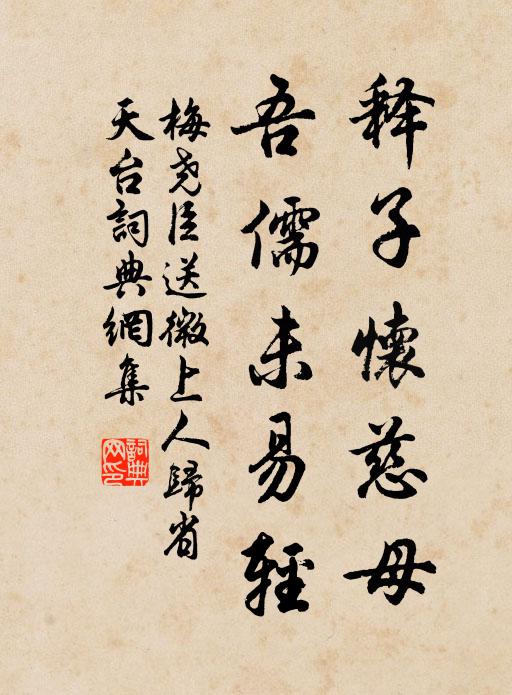 释子懷慈母
吾儒未易輕
梅尧臣送徽上人歸省
天台詞典網集
詞典网印